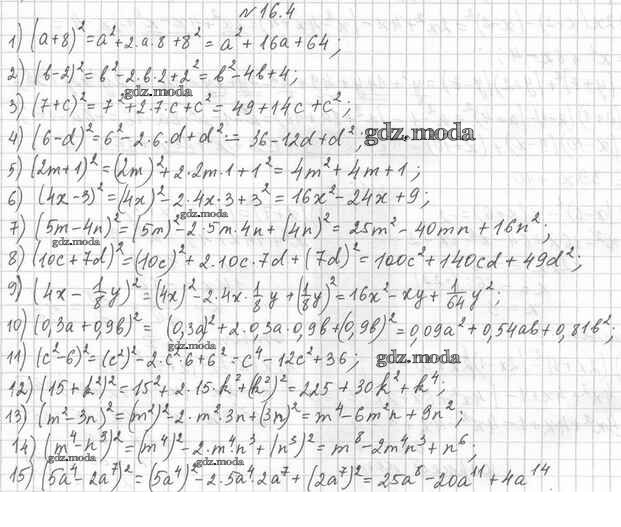 №16.4
1) (a+8)²=a²+2·a·8+8²=a²+16a+64;
2) (b-2)²=b²-2·b·2+2²=b²-4b+4;
gdz.moda
3) (7+c)²=7²+2·7·c+c²=49+14c+c²;
4) (6-d)²=6²-2·6·d+d²=36-12d+d²; gdz.moda
5) (2m+1)²=(2m)²+2·2m·1+1²=4m²+4m+1;
6) (4x-3)²=(4x)²-2·4x·3+3²=16x²-24x+9;
gdz.moda
7) (5m-4n)²=(5m)²-2·5m·4n+(4n)²=25m²-40mn+16n²;
gdz.moda
8) (10c+7d)²=(10c)²+2·10c·7d+(7d)²=100c²+140cd+49d²;
9) (4x-1/8y)²=(4x)²-2·4x·1/8y+(1/8y)²=16x²-xy+1/64y²;
10) (0,3a+0,9b)²=(0,3a)²+2·0,3a·0,9b+(0,9b)²=0,09a²+0,54ab+0,81b²;
gdz.moda
11) (c²-6)²=(c²)²-2·c²·6+6²=c⁴-12c²+36; gdz.moda
12) (15+k²)²=15²+2·15·k²+(k²)²=225+30k²+k⁴;
13) (m²-3n)²=(m²)²-2·m²·3n+(3n)²=m⁴-6m²n+9n²;
14) (m⁴-n³)²=(m⁴)²-2·m⁴·n³+(n³)²=m⁸-2m⁴n³+n⁶;
gdz.moda gdz.moda
15) (5a⁴-2a⁷)²=(5a⁴)²-2·5a⁴·2a⁷+(2a⁷)²=25a⁸-20a¹¹+4a¹⁴